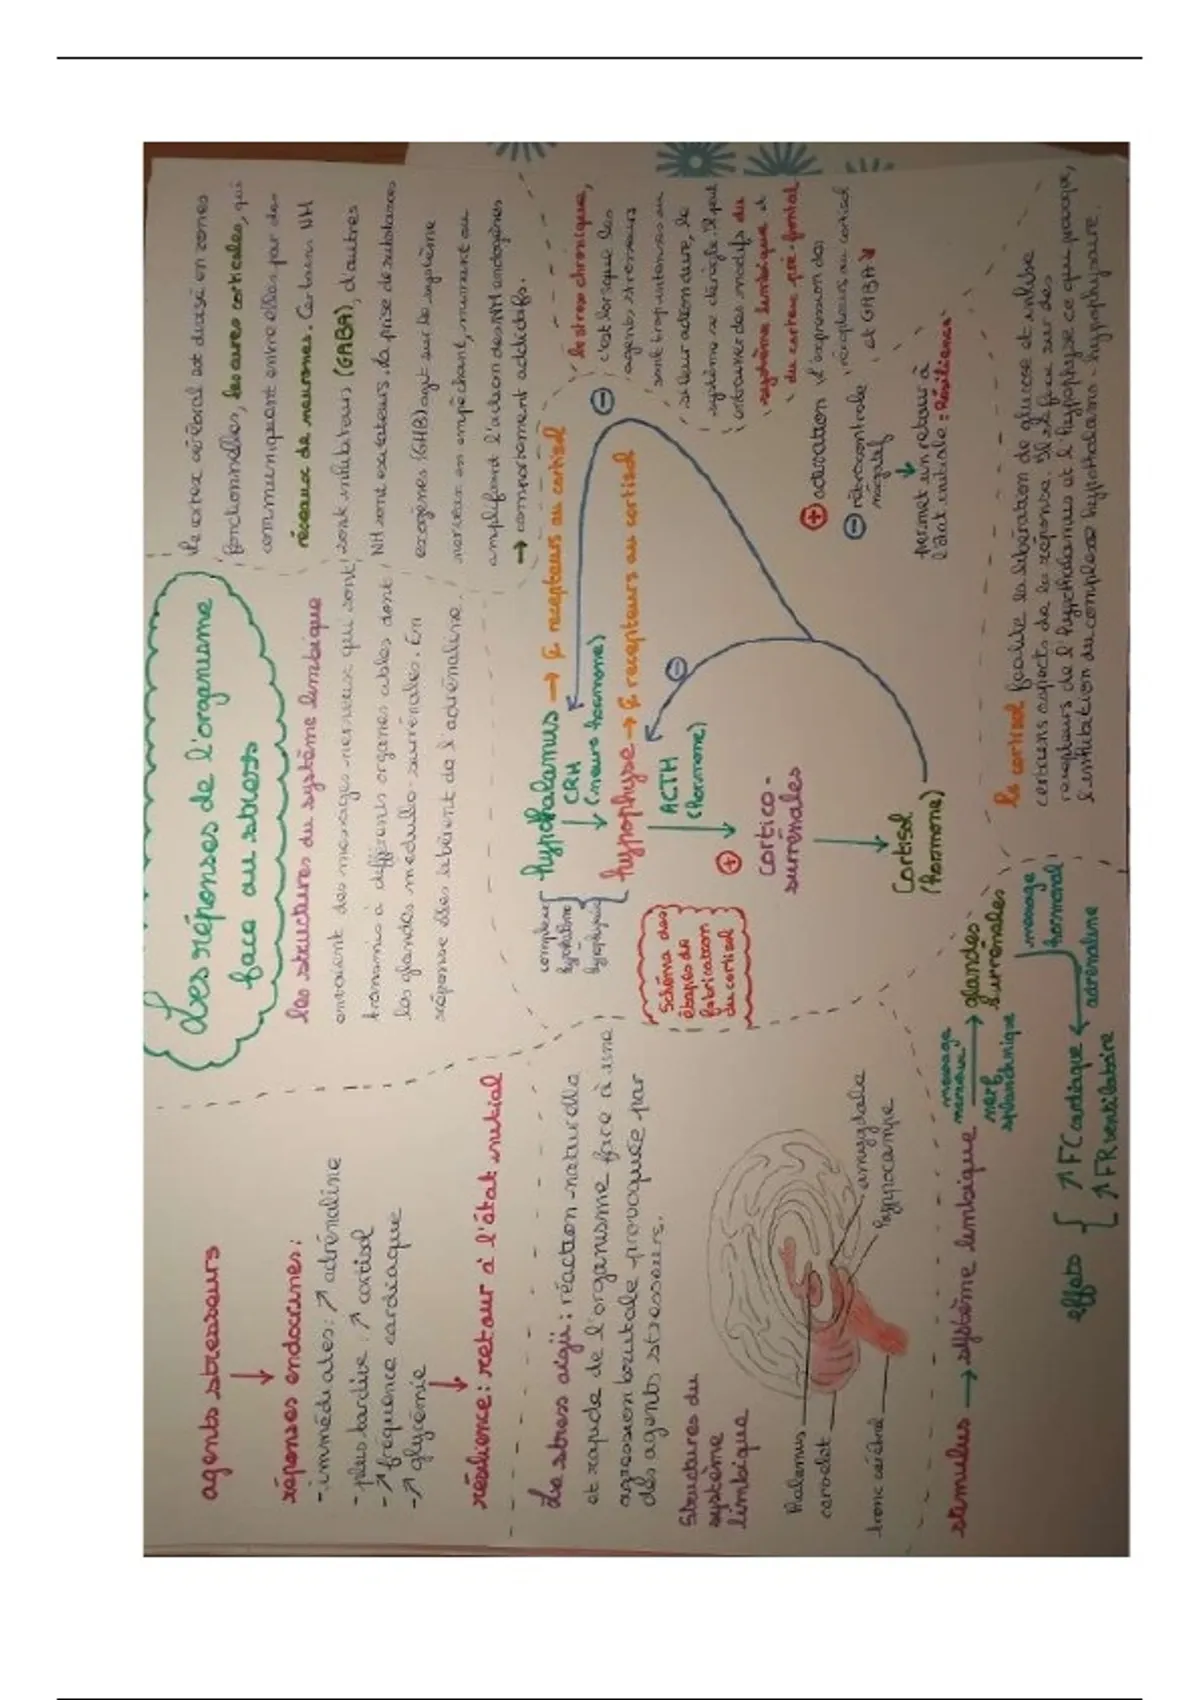 Les réponses de l'organisme
face au stress
agents stresseurs
↓
réponses endocrines :
- immédiates : ↗ adrénaline
- plus tardive : ↗ cortisol
- ↗ fréquence cardiaque
- ↗ glycémie
↓
résilience : retour à l'état initial
les structures du système limbique
envoient des messages nerveux qui sont
transmis à différents organes cibles dont
les glandes médullo-surrénales. En
réponse elles libèrent de l'adrénaline.
Le cortex cérébral est divisé en zones
fonctionnelles, les aires corticales, qui
communiquent entre elles par des
réseaux de neurones. Certains NM
sont inhibiteurs (GABA), d'autres
NM sont excitateurs. La prise de substances
exogènes (GHB) agit sur le système
nerveux en empêchant, mimant ou
amplifiant l'action des NM endogènes
→ comportement addictifs.
Le stress aigü : réaction naturelle
et rapide de l'organisme face à une
agression brutale provoquée par
des agents stresseurs.
Structures du
système
limbique
thalamus
cervelet
tronc cérébral
amygdale
hippocampe
complexe
hypothalamo
-
hypophysaire
hypothalamus → récepteurs au cortisol
CRH
(neuro hormone)
hypophyse → récepteurs au cortisol
ACTH
(hormone)
+
cortico-
surrénales
Cortisol
(hormone)
-
-
Schéma des
étapes de
fabrication
du cortisol
le stress chronique,
c'est lorsque les
agents stresseurs
sont trop intenses ou
si leur action dure, le
système se dérègle. Il peut
entraîner des modifs du
système limbique et
du cortex pré-frontal
↓ l'expression des
récepteurs au cortisol
et GABA ↘
+ activation
- rétrocontrôle
négatif
↓
permet un retour à
l'état initial : résilience
stimulus → système limbique
message
nerveux
nerf
splanchnique
→ glandes
surrénales
message
hormonal
adrénaline
effets { ↗ FC cardiaque
↗ FR ventilatoire
le cortisol facilite la libération de glucose et inhibe
certains aspects de la réponse. Il se fixe sur des
récepteurs de l'hypothalamus et l'hypophyse ce qui provoque,
l'inhibition du complexe hypothalamo-hypophysaire.